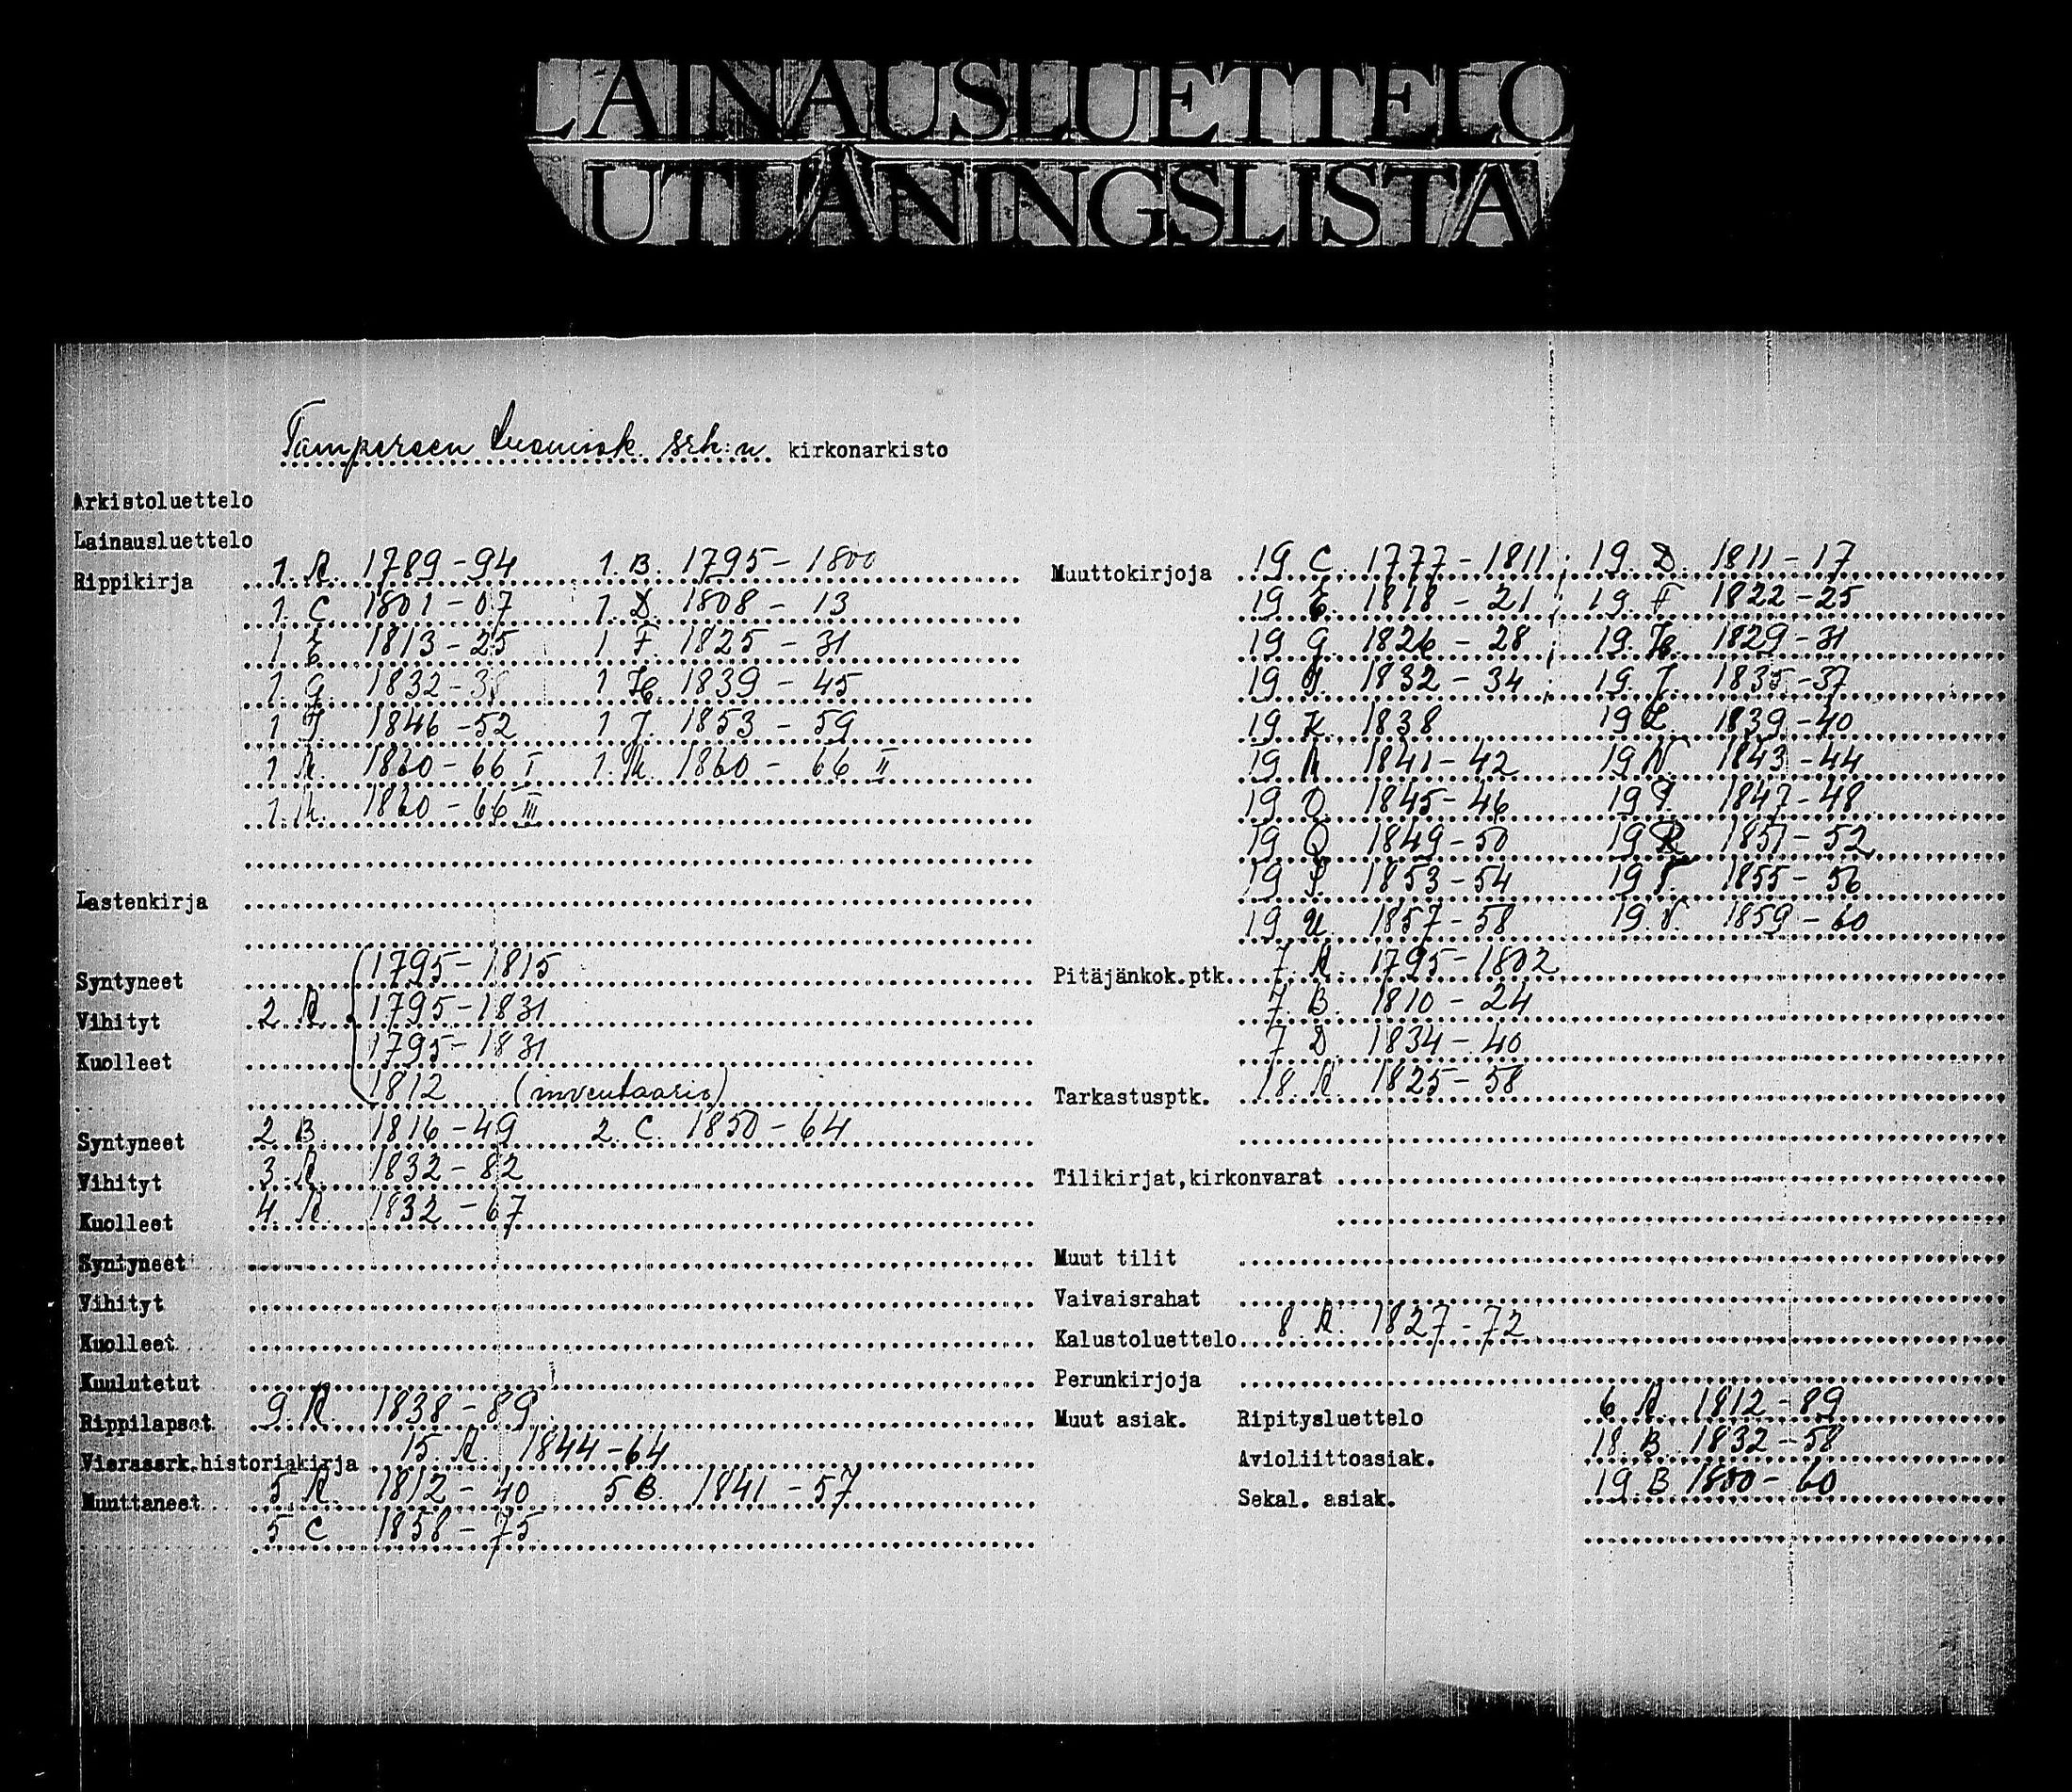 LAINAUSLUETTELO
UTLÅNINGSLISTA
Tampereen tuomiok. srk:n kirkonarkisto
Arkistoluettelo
Lainausluettelo
Rippikirja 1. A. 1789-94 1. B. 1795-1800
1. C. 1801-07 1. D. 1808-13
1 E 1813-25 1 F. 1825-31
1. G. 1832-38 1 H. 1839-45
1 I. 1846-52 1 J. 1853-59
1 K. 1860-66 I 1. 1860-66 II
1. 1860-66 III
Lastenkirja
Syntyneet 1795-1815
Vihityt 2 A. 1795-1831
Kuolleet 1795-1831
1812 (inventaario)
Syntyneet 2 B. 1816-49 2. C. 1850-64
Vihityt 3. A. 1832-82
Kuolleet 4. A. 1832-67
Syntyneet
Vihityt
Kuolleet
Kuulutetut
Rippilapset 9. A. 1838-89
Vierassrk.historiakirja 15. A. 1844-64
Muuttaneet 5 A. 1812-40 5 B. 1841-57
5 C 1858-75
Muuttokirjoja 19 C. 1777-1811; 19. D. 1811-17
19 E. 1818-21; 19. F 1822-25
19 G. 1826-28; 19. H. 1829-31
19 I. 1832-34; 19. J. 1835-37
19 K. 1838 19 L. 1839-40
19 1841-42 19 N. 1843-44
19 O. 1845-46 19 P. 1847-48
19 Q 1849-50 19 R 1851-52
19 S. 1853-54 19 T. 1855-56
19 U. 1857-58 19. V. 1859-60
Pitäjänkok.ptk. 7. A. 1795-1802
7. B. 1810-24
7 D. 1834-40
Tarkastusptk. 18. A. 1825-58
Tilikirjat,kirkonvarat
Muut tilit
Vaivaisrahat
Kalustoluettelo 8. A. 1827-72
Perunkirjoja
Muut asiak. Ripitysluettelo 6 A. 1812-89
Avioliittoasiak. 18. B. 1832-58
Sekal. asiak. 19. B 1800-60